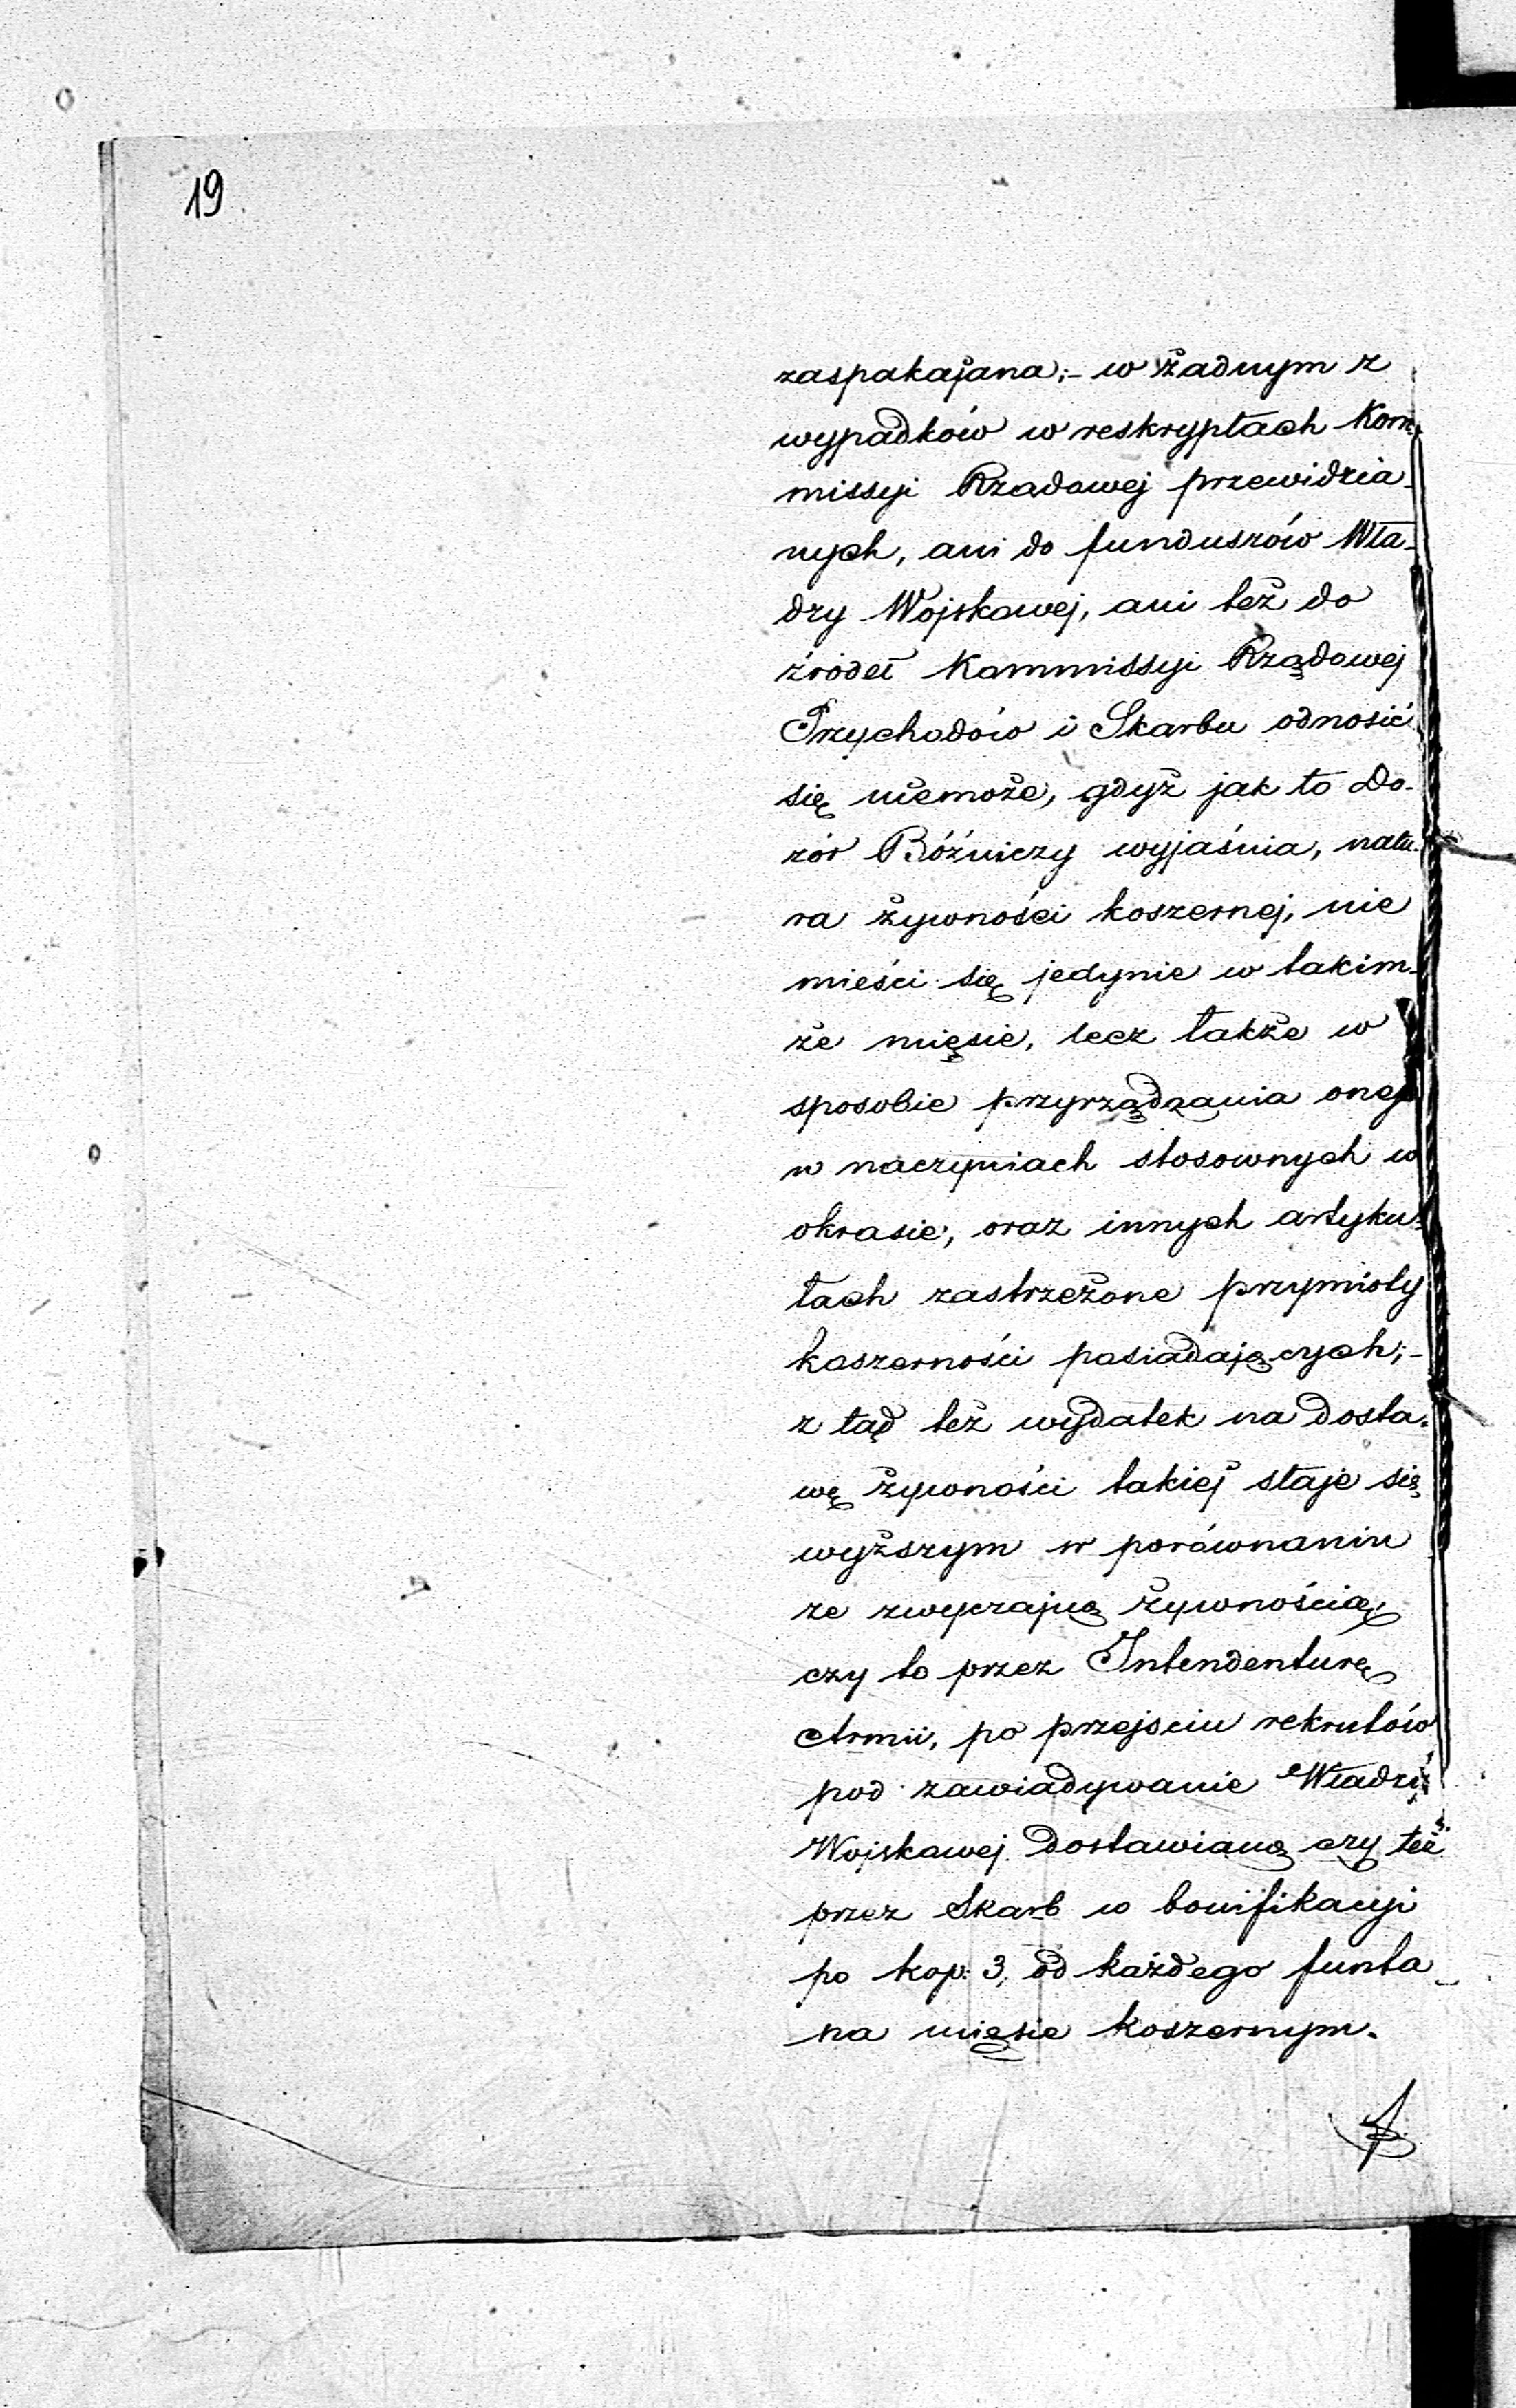 19
zaspakajana;- w żadnym z
wypadków w reskryptach Kom-
missyi Rządowej przewidzia-
nych, ani do funduszów Wła-
dzy Wojskowej, ani też do
źródeł Kommissyi Rządowej
Przychodów i Skarbu odnosić
się niemoże, gdyż jak to Do-
zór Bóźniczy wyjaśnia, natu-
ra żywności koszernej, nie
mieści się jedynie w takim-
że mięsie, lecz także w
sposobie przyrządzania onej
w naczyniach stosownych w
okrasie, oraz innych artyku-
łach zastrzeżone przymioty
koszerności posiadających;-
z tąd też wydatek na dosta-
wę żywności takiej staje się
wyższym w porównaniu
ze zwyczajną żywnością,
czy to przez Intendenturę
Armii, po przejściu rekrutów
pod zawiadywanie Władzy
Wojskowej dostawianą czy też
przez Skarb w bonifikacyi
po kop: 3, od każdego funta
na mięsie koszernym.